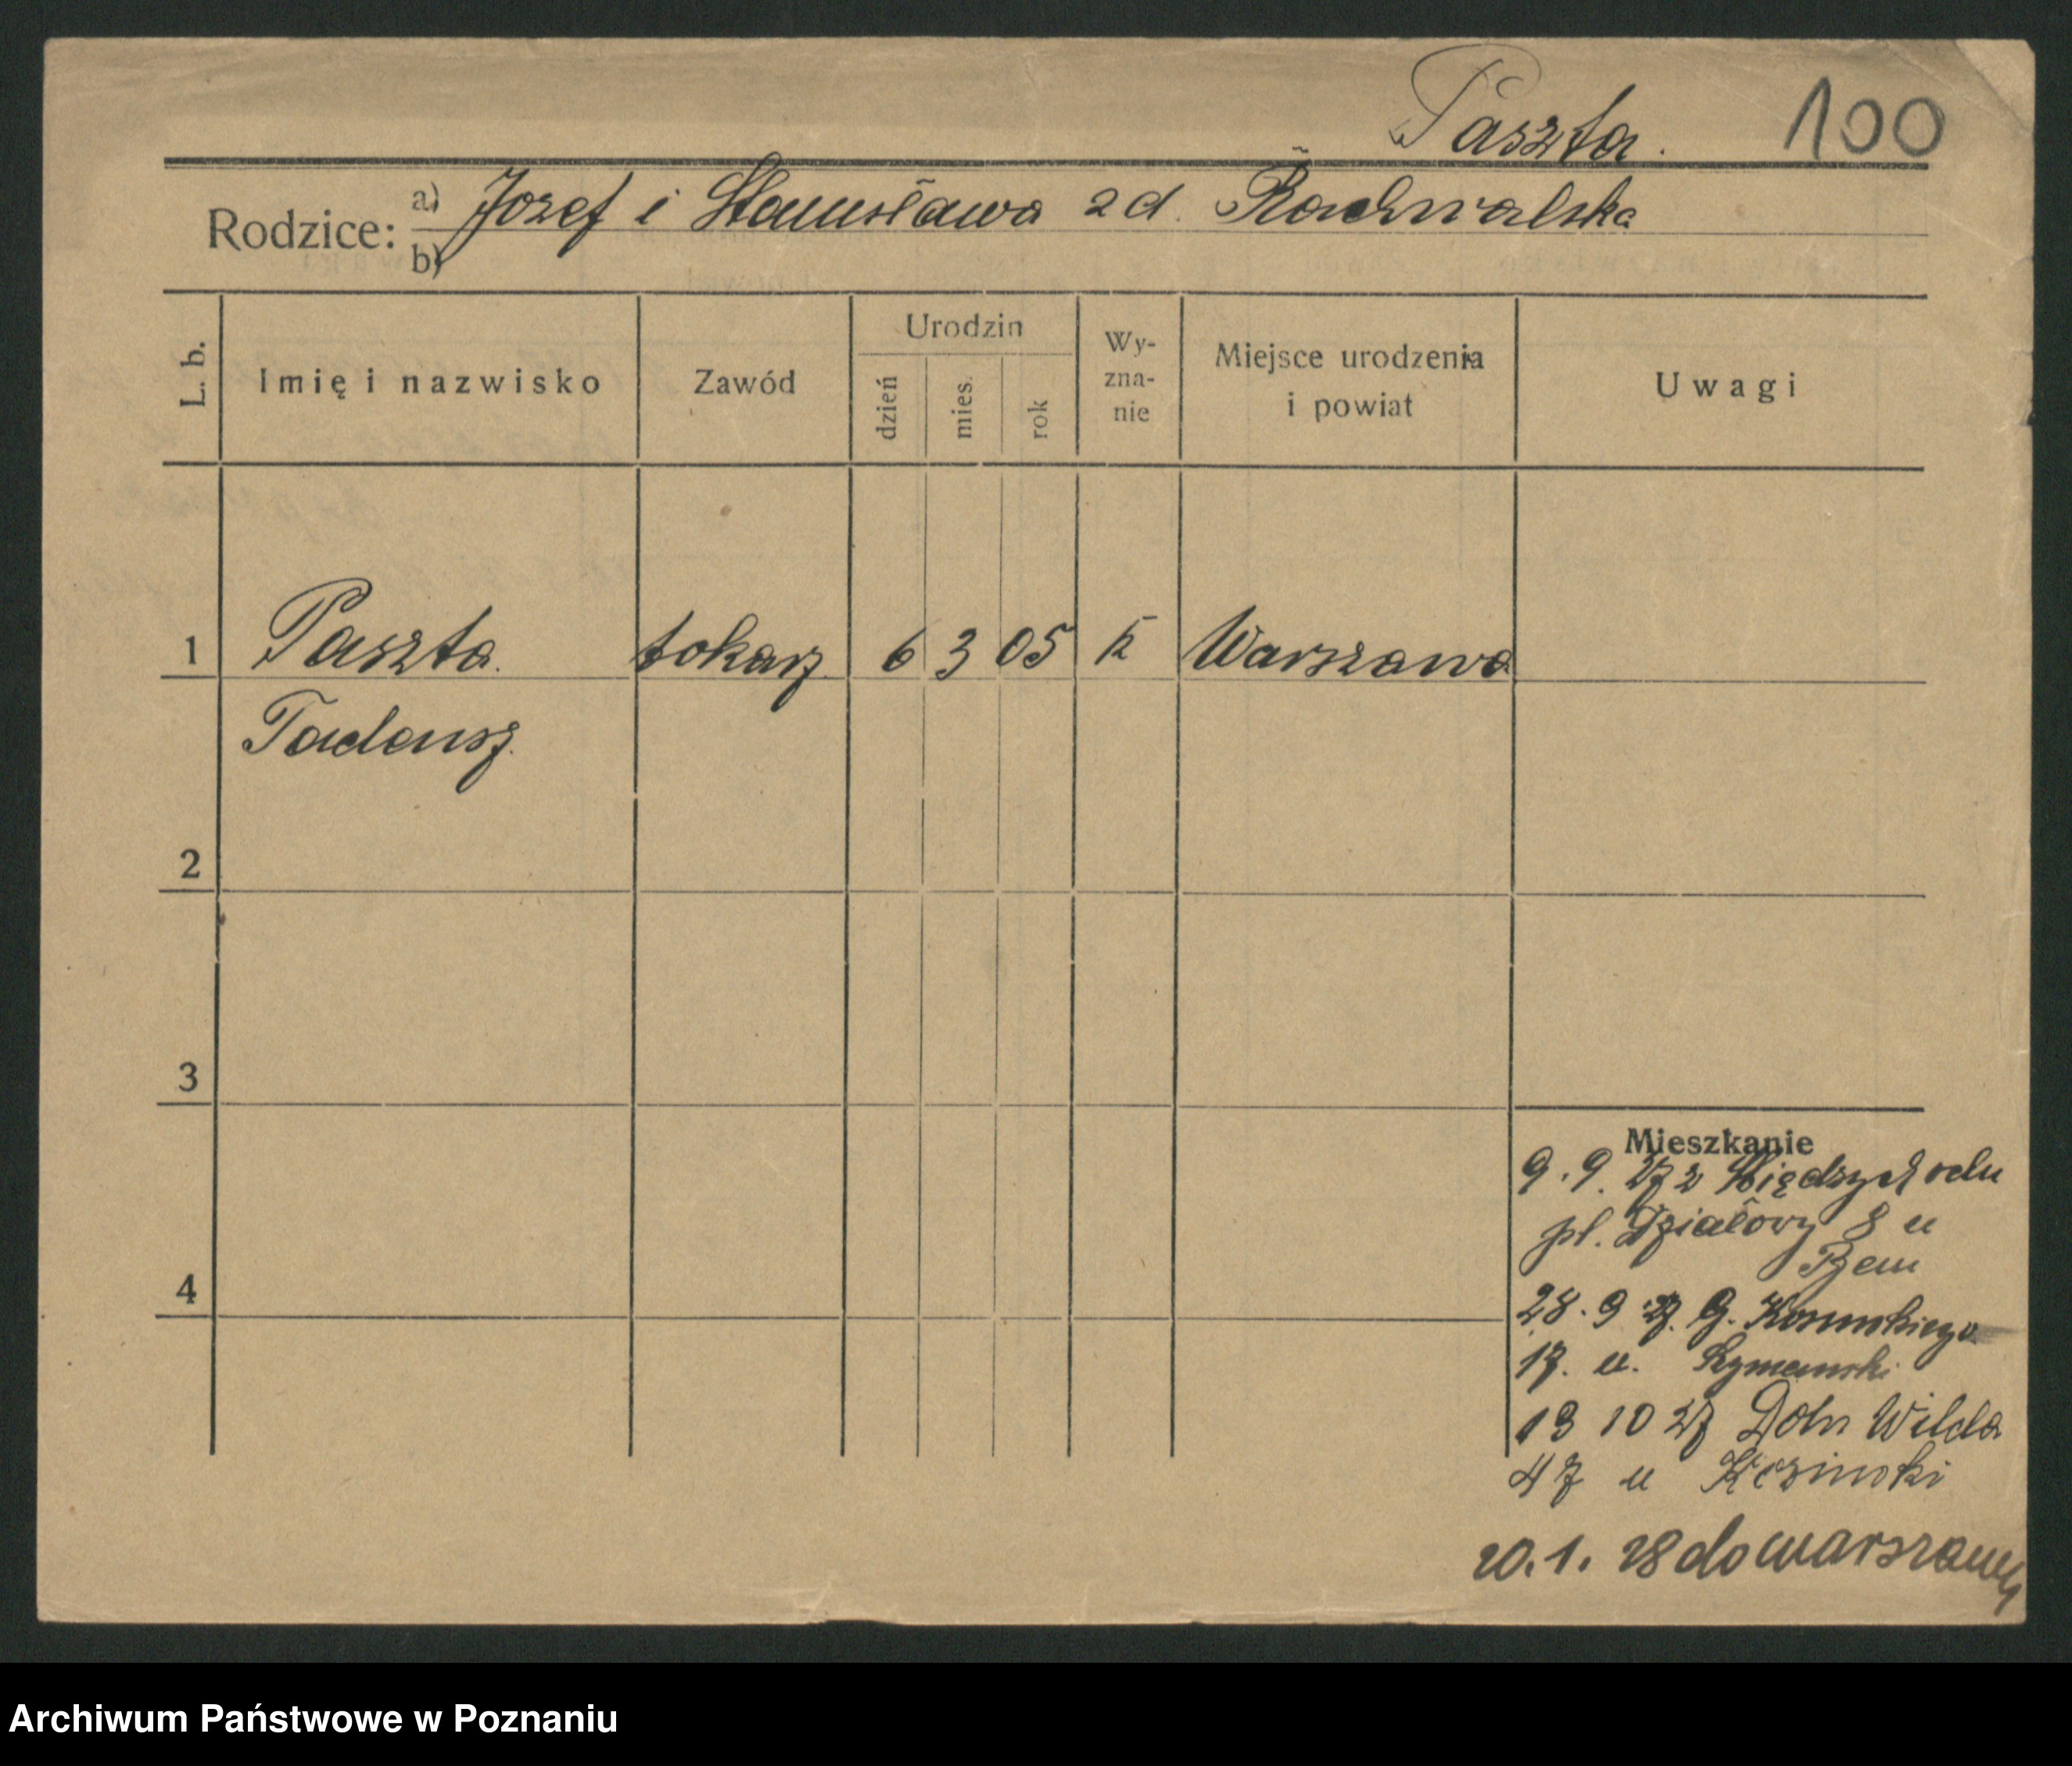 Paszta. 100
Rodzice: a) Jozef i Stanisława zd. Rachwalska
b)
L. b. Imię i nazwisko Zawód Urodzin dzień mies. rok Wy-zna-nie Miejsce urodzenia i powiat Uwagi
1 Paszta tokarz 6 3 05 k Warszawa
Tadeusz
2
3
Mieszkanie
9.9.27 z Międzychodu
pl. Działowy 8 u
4
28.9 27. G.
17. u. Szymanski
13 10 27 Doln Wilda
47 u
20.1.28 do Warszawy
Archiwum Państwowe w Poznaniu